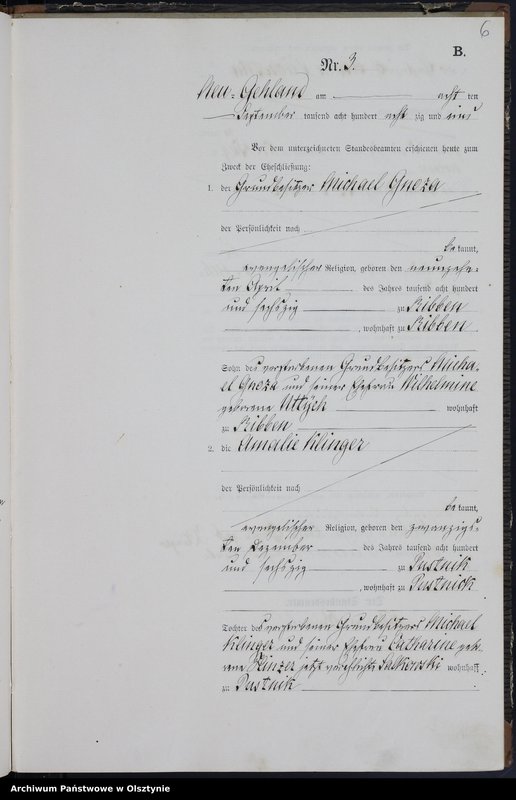 6
B.
Nr. 3.
Neu-Gehland am acht ten
September tausend acht hundert acht zig und eins
Vor dem unterzeichneten Standesbeamten erschienen heute zum
Zweck der Eheschließung:
1. der Grundbesitzer Michael Gneza
der Persönlichkeit nach
be kannt,
evangelischer Religion, geboren den neunzehn-
ten April des Jahres tausend acht hundert
und sechszig zu Ribben
, wohnhaft zu Ribben
Sohn des verstorbenen Grundbesitzers Micha-
el Gneza und seiner Ehefrau Wilhelmine
geborene wohnhaft
zu Ribben
2. die Amalie Klinger
der Persönlichkeit nach
be kannt,
evangelischer Religion, geboren den zwanzigs-
ten Dezember des Jahres tausend acht hundert
und sechszig zu Pustnik
, wohnhaft zu Pustnick
Tochter des verstorbenen Grundbesitzers Michael
Klinger und seiner Ehefrau Catharine gebo-
rene jetzt verehlichte Salkowski wohnhaft
zu Pustnik
Archiwum Państwowe w Olsztynie